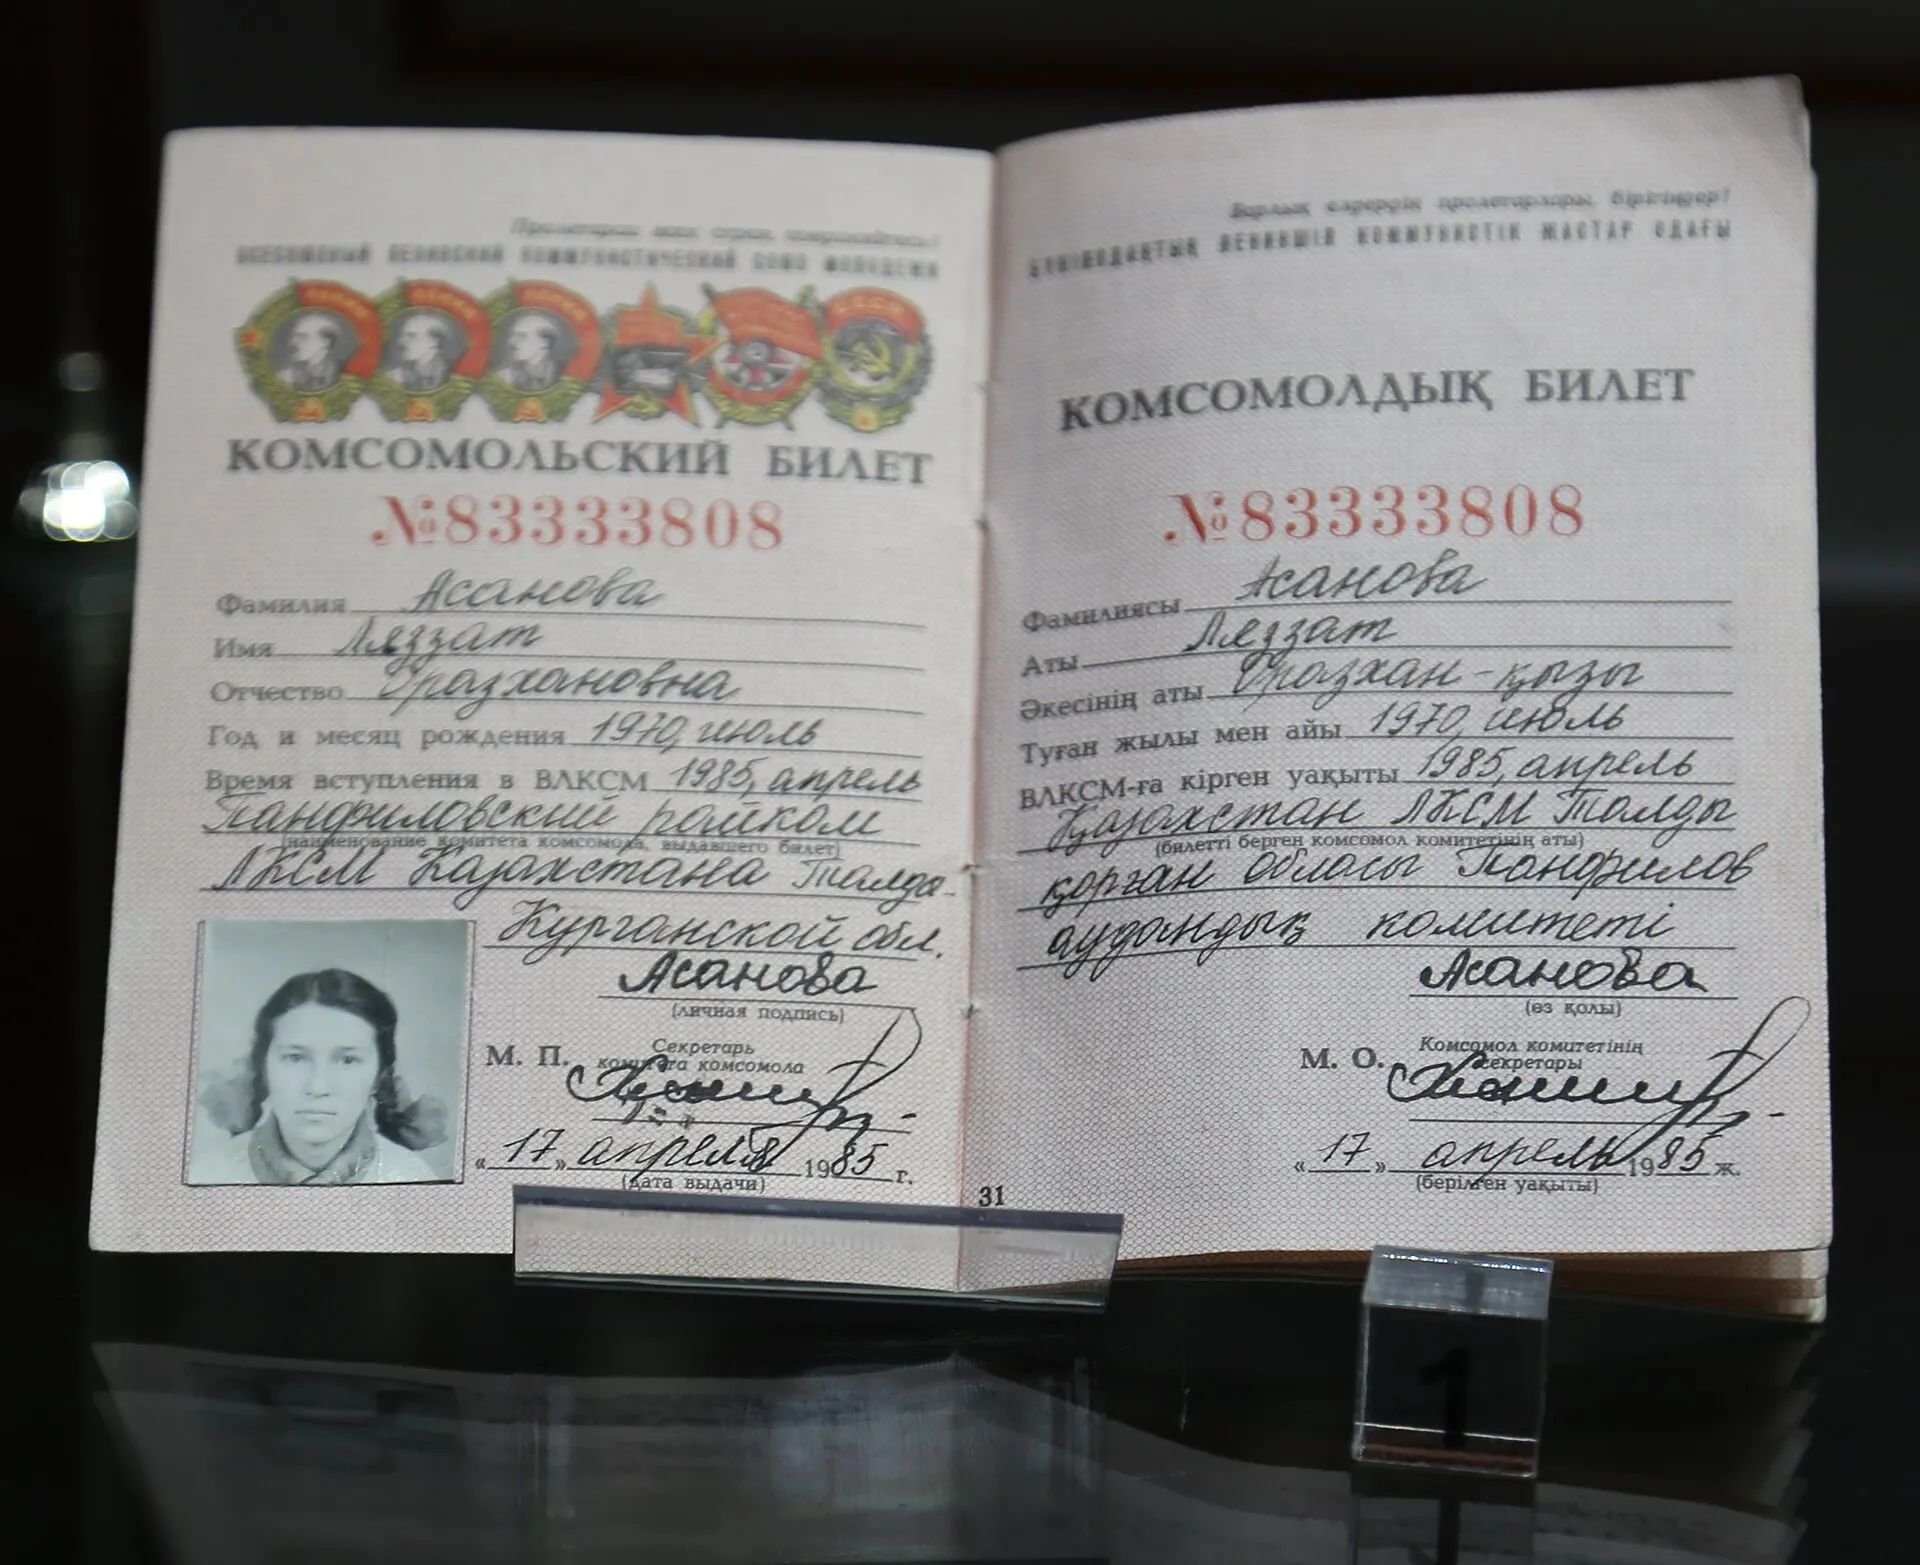 Пролетарии всех стран, соединяйтесь!
ВСЕСОЮЗНЫЙ ЛЕНИНСКИЙ КОММУНИСТИЧЕСКИЙ СОЮЗ МОЛОДЕЖИ
КОМСОМОЛЬСКИЙ БИЛЕТ
№83333808
Фамилия Асанова
Имя Ляззат
Отчество Оразхановна
Год и месяц рождения 1970, июль
Время вступления в ВЛКСМ 1985, апрель
Панфиловский райком
(наименование комитета комсомола, выдавшего билет)
ЛКСМ Казахстана Талды-
Курганской обл.
Асанова
(личная подпись)
М. П. Секретарь
комитета комсомола
«17» апрель 1985 г.
(дата выдачи)
31
Барлық елдердің пролетарлары, бірігіңдер!
БҮКІЛОДАҚТЫҚ ЛЕНИНШІЛ КОММУНИСТІК ЖАСТАР ОДАҒЫ
КОМСОМОЛДЫҚ БИЛЕТ
№83333808
Фамилиясы Асанова
Аты Ляззат
Әкесінің аты Оразхан-қызы
Туған жылы мен айы 1970, июль
ВЛКСМ-ға кірген уақыты 1985, апрель
Қазахстан ЛКСМ Талды
(билетті берген комсомол комитетінің аты)
қорған обласы Панфилов
аудандық комитеті
Асанова
(өз қолы)
М. О. Комсомол комитетінің
секретары
«17» апрель 1985 ж.
(берілген уақыты)
1